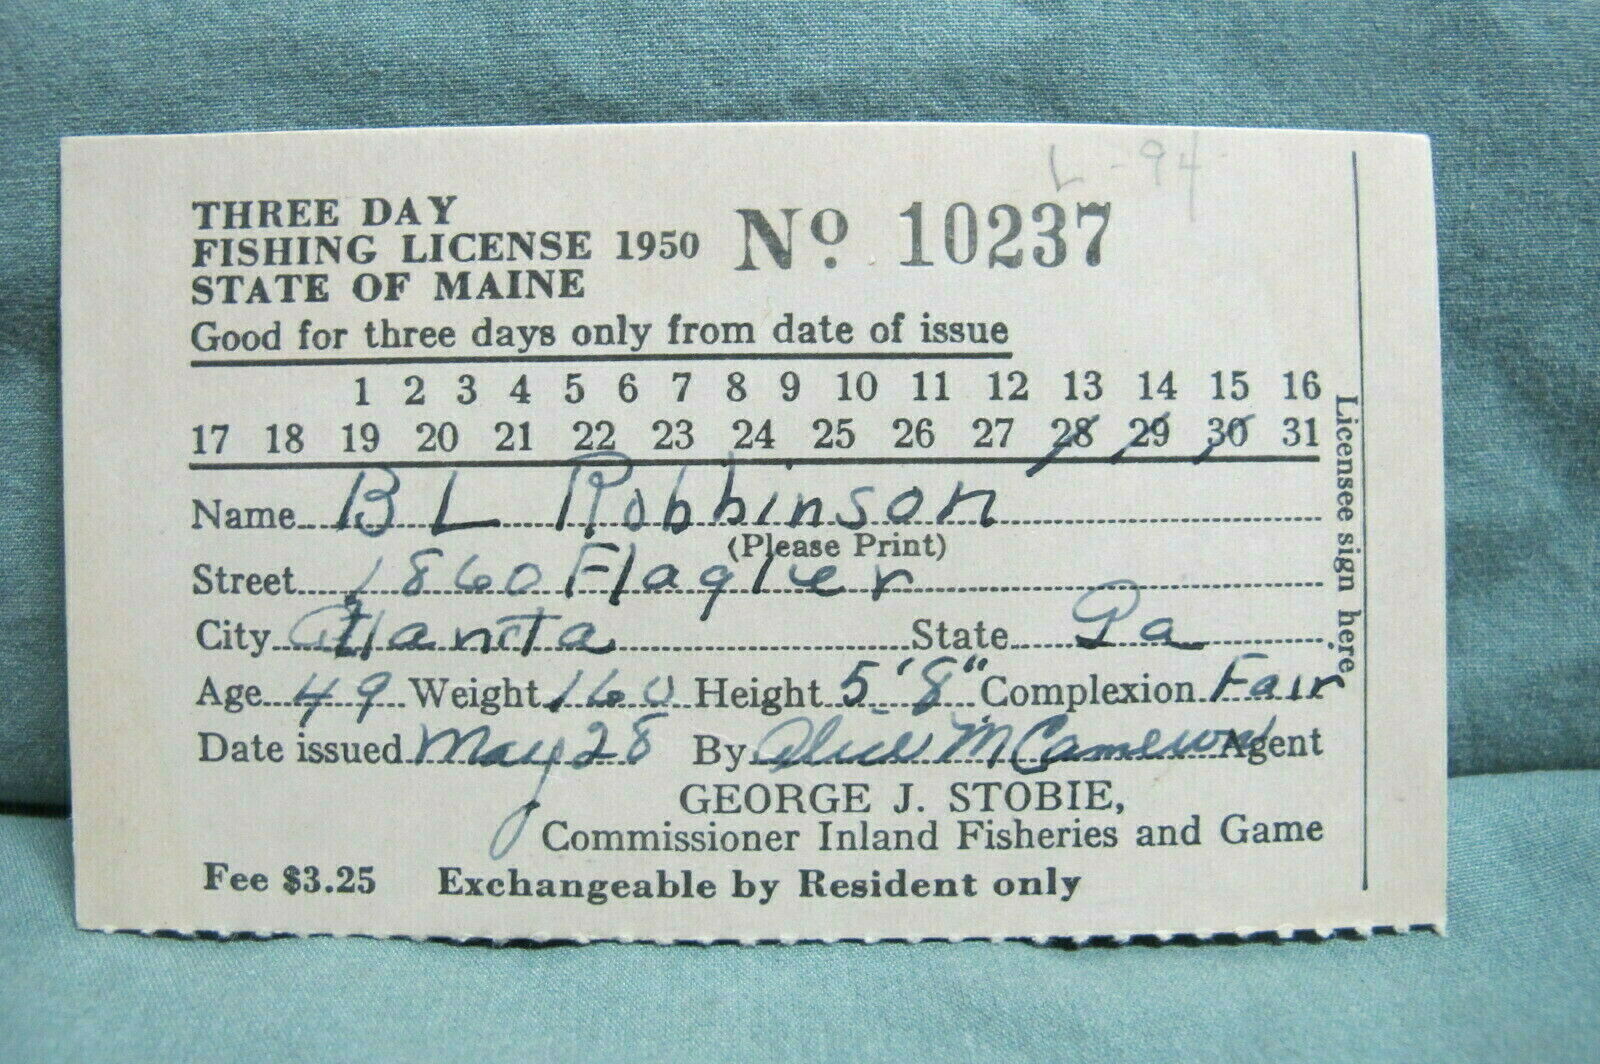 L-94
THREE DAY
FISHING LICENSE 1950 No. 10237
STATE OF MAINE
Good for three days only from date of issue
1 2 3 4 5 6 7 8 9 10 11 12 13 14 15 16
17 18 19 20 21 22 23 24 25 26 27 28 29 30 31
Name B L Robbinson
(Please Print)
Street 1860 Flaglier
City Atlanta State Ga
Age 49 Weight 160 Height 5'8" Complexion Fair
Date issued May 28 By Alice McCameron Agent
GEORGE J. STOBIE,
Commissioner Inland Fisheries and Game
Fee $3.25 Exchangeable by Resident only
Licensee sign here